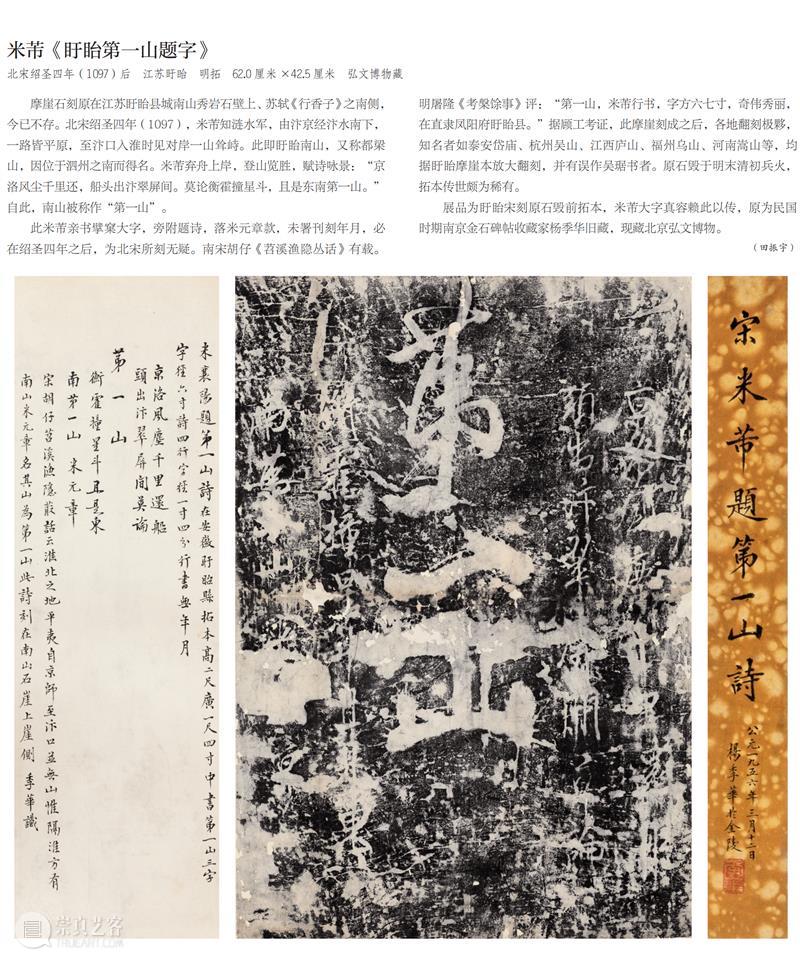 米芾《盱眙第一山题字》
北宋绍圣四年（1097）后　江苏盱眙　明拓　62.0厘米×42.5厘米　弘文博物藏
摩崖石刻原在江苏盱眙县城南山秀岩石壁上、苏轼《行香子》之南侧，
今已不存。北宋绍圣四年（1097），米芾知涟水军，由汴京经汴水南下，
一路皆平原，至汴口入淮时见对岸一山耸峙。此即盱眙南山，又称都梁
山，因位于泗州之南而得名。米芾弃舟上岸，登山览胜，赋诗咏景：“京
洛风尘千里还，船头出汴翠屏间。莫论衡霍撞星斗，且是东南第一山。”
自此，南山被称作“第一山”。
此米芾亲书擘窠大字，旁附题诗，落米元章款，未署刊刻年月，必
在绍圣四年之后，为北宋所刻无疑。南宋胡仔《苕溪渔隐丛话》有载。
明屠隆《考槃馀事》评：“第一山，米芾行书，字方六七寸，奇伟秀丽，
在直隶凤阳府盱眙县。”据顾工考证，此摩崖刻成之后，各地翻刻极夥，
知名者如泰安岱庙、杭州吴山、江西庐山、福州乌山、河南嵩山等，均
据盱眙摩崖本放大翻刻，并有误作吴琚书者。原石毁于明末清初兵火，
拓本传世颇为稀有。
展品为盱眙宋刻原石毁前拓本，米芾大字真容赖此以传，原为民国
时期南京金石碑帖收藏家杨季华旧藏，现藏北京弘文博物。
（田振宇）
宋米芾題第一山詩
公元一九五六年三月十二日
楊季華於金陵
第一山
米襄陽題第一山詩在安徽盱眙縣拓本高二尺廣一尺四寸中書第一山三字
字徑六寸詩四行字徑一寸四分行書無年月
京洛風塵千里還船
頭出汴翠屏間莫論
第一山
衡霍撞星斗且是東
南第一山 米元章
宋胡仔苕溪漁隱叢話云淮北之地平夷自京師至汴口並無山惟隔淮方有
南山米元章名其山為第一山此詩刻在南山石崖上崖側 季華識
崇真艺客
TRUEART.COM